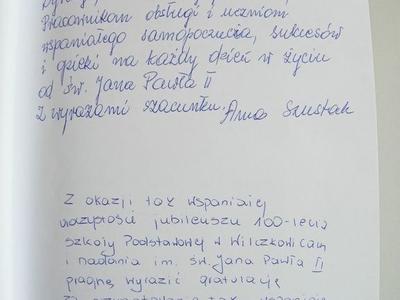 Pracownikom obsługi i uczniom
wspaniałego samopoczucia, sukcesów
i opieki na każdy dzień w życiu
od św. Jana Pawła II
Z wyrazami szacunku. Anna Szustak
Z okazji tak wspaniałej
uroczystości jubileuszu 100-lecia
szkoły Podstawowej w Wilczkowicach
i nadania im. św. Jana Pawła II
pragnę wyrazić gratulacje